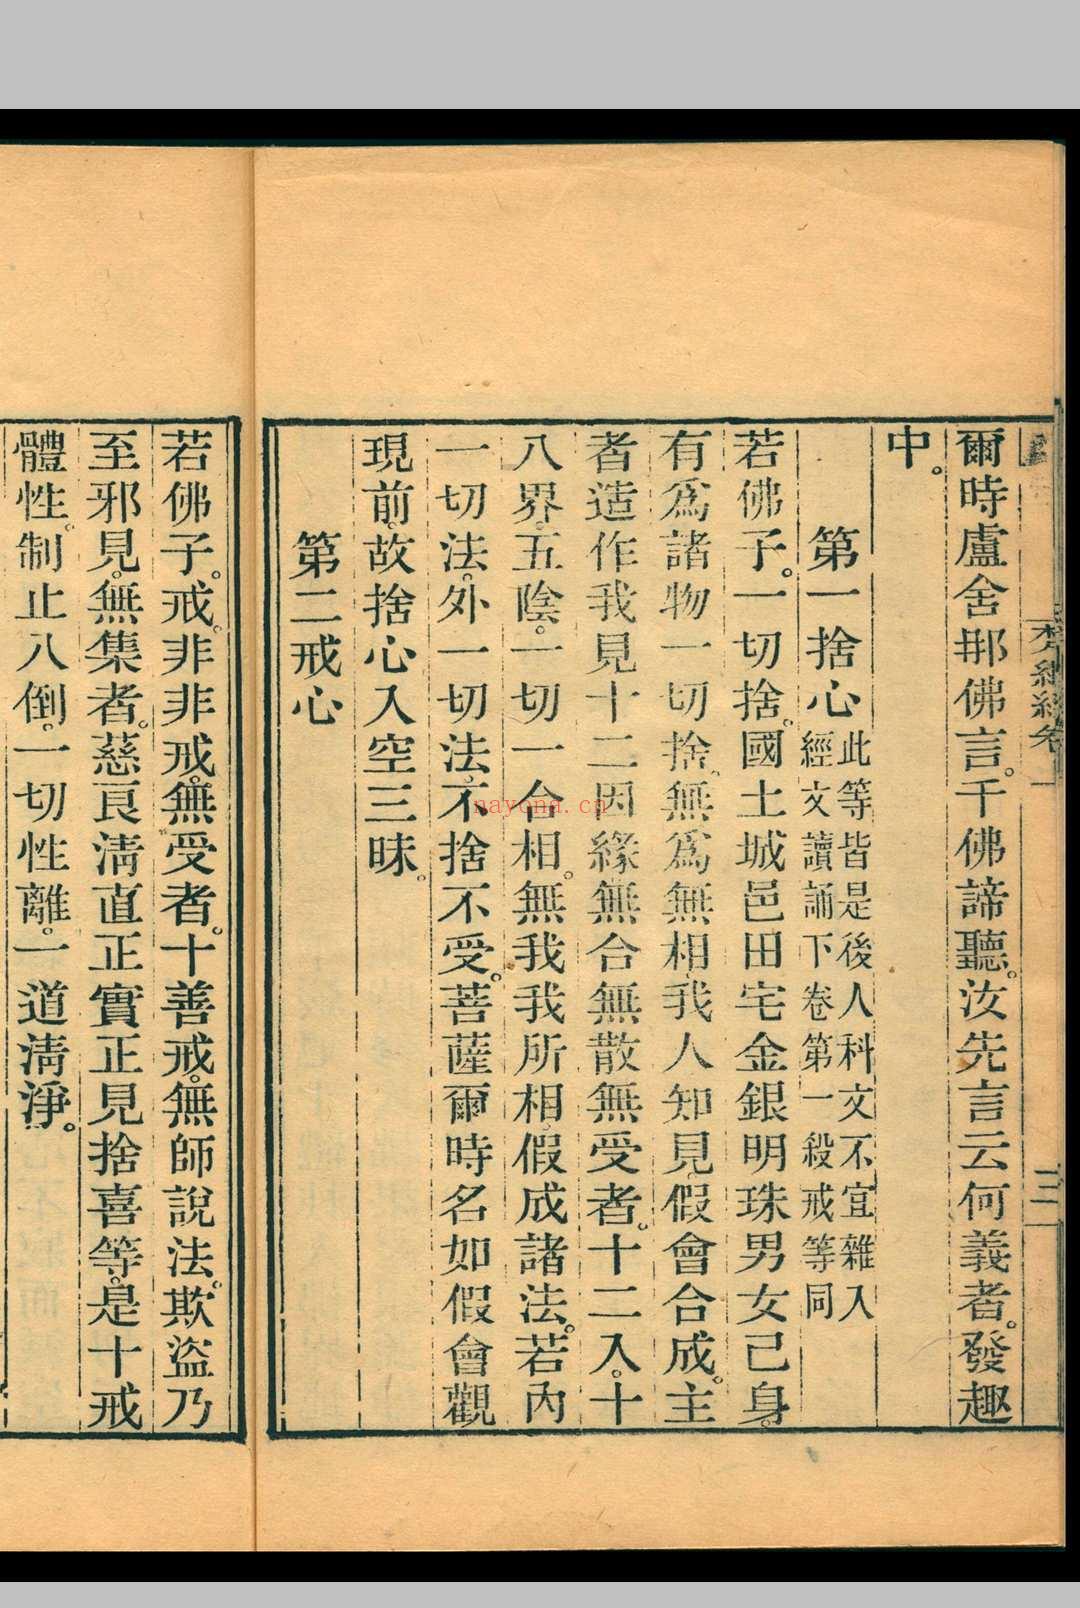 梵網經卷上 三
爾時盧舍那佛言。千佛諦聽。汝先言云何義者。發趣
中。
第一捨心 此等皆是後人科文不宜雜入
經文讀誦下卷第一殺戒等同
若佛子。一切捨。國土城邑田宅金銀明珠男女己身。
有爲諸物一切捨。無爲無相。我人知見。假會合成。主
者造作我見十二因緣。無合無散無受者。十二入。十
八界。五陰。一切一合相。無我我所相。假成諸法。若內
一切法。外一切法。不捨不受。菩薩爾時名如假會觀
現前。故捨心入空三昧。
第二戒心
若佛子。戒。非非戒。無受者。十善戒。無師說法。欺盜乃
至邪見。無集者。慈良清直正實正見捨喜等。是十戒
體性。制止八倒。一切性離。一道清淨。
nayona.cn